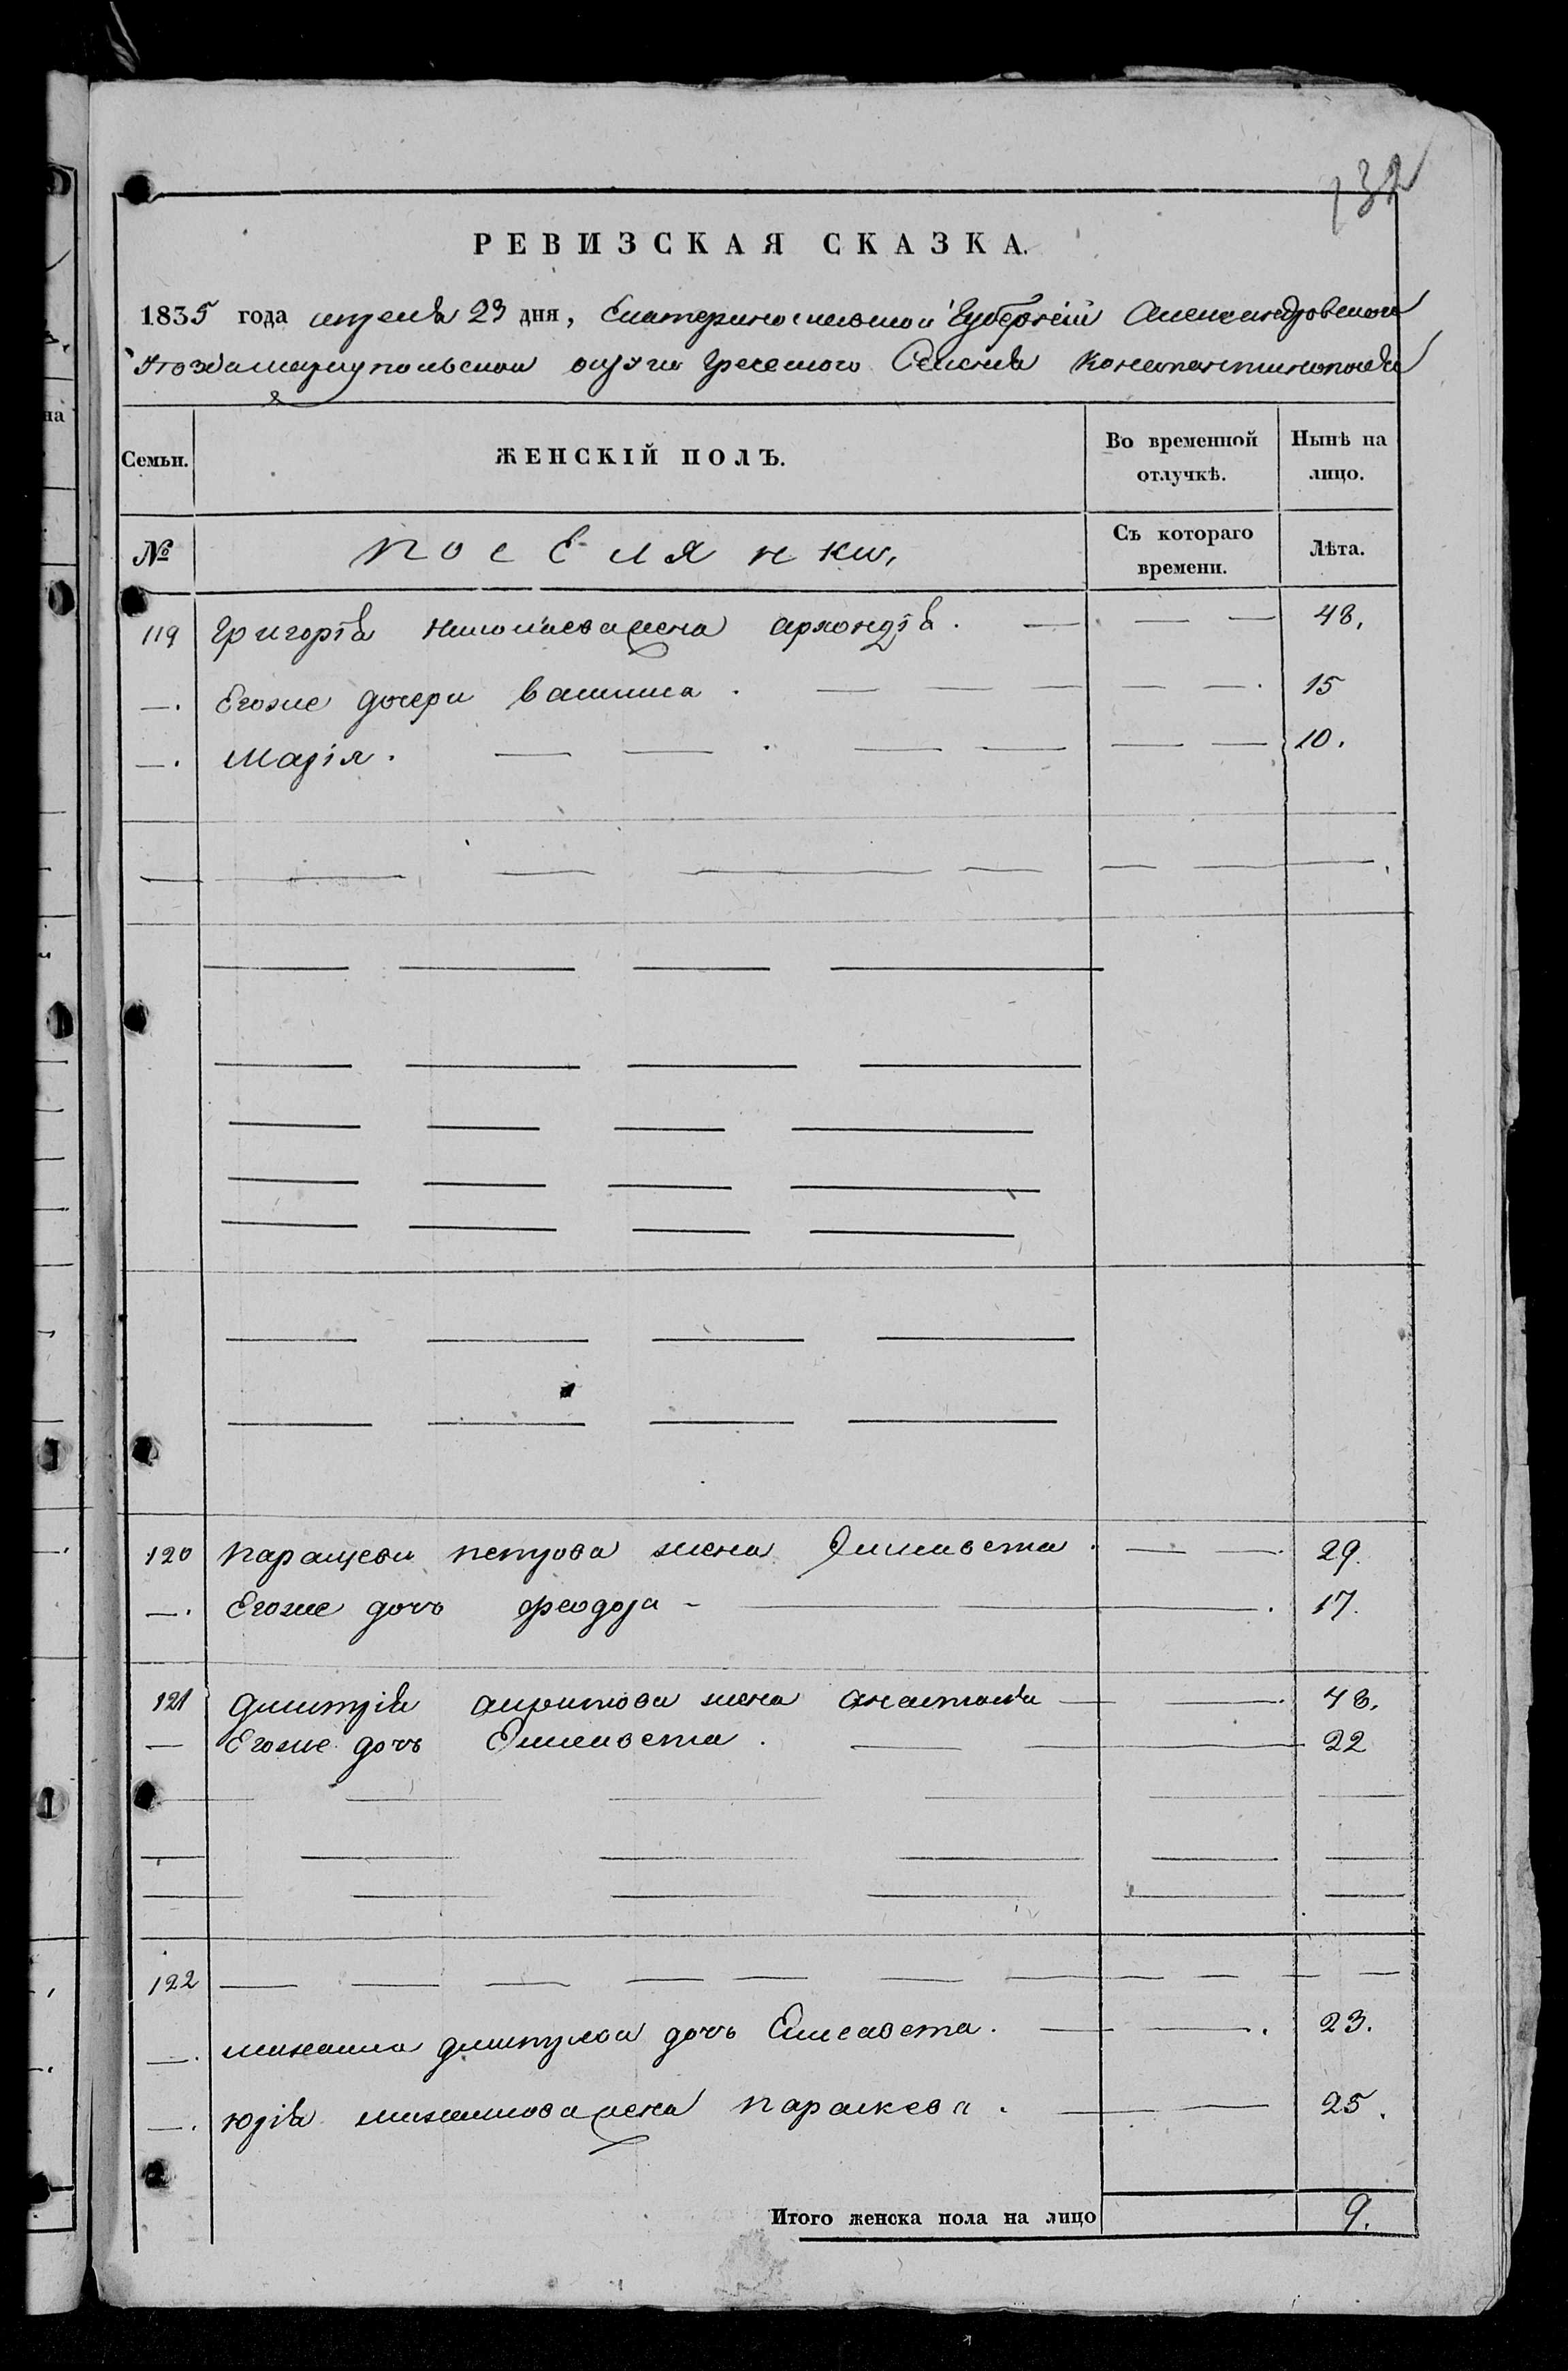 132
РЕВИЗСКАЯ СКАЗКА.
1835 года апреля 23 дня, Екатеринославской Губерніи Александровского
Уезда мариупольской округи Греческого Селенія Константинополя
на
Семьи.
ЖЕНСКІЙ ПОЛЪ.
Во временной отлучкѣ.
Нынѣ на лицо.
№
поселянки,
Съ котораго времени.
Лѣта.
119 Григорія николаева жена архондія. 48,
Егоже дочери василиса. 15
марія. 10.
120 паращева петрова жена Елисавета. 29.
Егоже дочь феодора 17.
121 дмитрія жена анастасія 48.
Егоже дочь Елисавета. 22
122
михаила дочь Елисавета. 23.
юрія михаилова жена параскева. 25.
Итого женска пола на лицо 9.